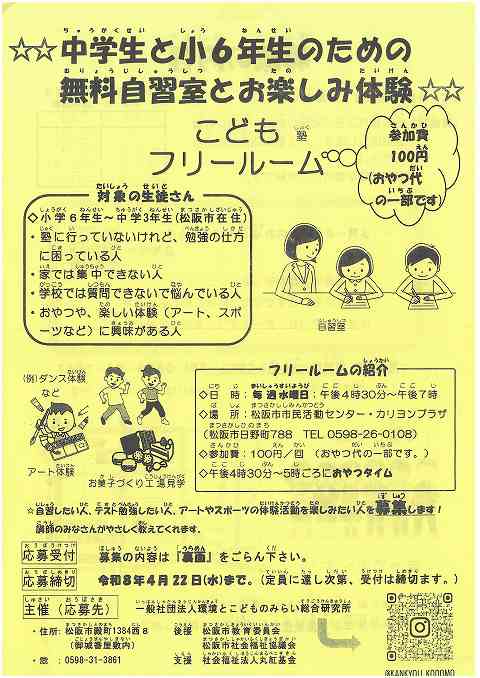 ☆☆中学生と小6年生のための
無料自習室とお楽しみ体験☆☆
こども塾
フリールーム
参加費
100円
(おやつ代
の一部です)
対象の生徒さん
◇小学6年生~中学3年生(松阪市在住)
・塾に行っていないけれど、勉強の仕方
に困っている人
・家では集中できない人
・学校では質問できないで悩んでいる人
・おやつや、楽しい体験(アート、スポ
ーツなど)に興味がある人
自習室
(例)ダンス体験
など
アート体験
お菓子づくり工場見学
フリールームの紹介
◇日 時:毎週水曜日:午後4時30分~午後7時
◇場 所:松阪市市民活動センター・カリヨンプラザ
(松阪市日野町788 TEL 0598-26-0108)
◇参加費:100円/回 (おやつ代の一部です。)
◇午後4時30分~5時ごろにおやつタイム
☆自習したい人、テスト勉強したい人、アートやスポーツの体験活動を楽しみたい人を募集します!
講師のみなさんがやさしく教えてくれます。
応募受付 募集の内容は『裏面』をごらん下さい。
応募締切 令和8年4月22日(水)まで。(定員に達し次第、受付は締切ます。)
主催(応募先) 一般社団法人環境とこどものみらい総合研究所
・住所:松阪市殿町1384西8
(御城番屋敷内)
・☎:0598-31-3861
後援 松阪市教育委員会
松阪市社会福祉協議会
支援 社会福祉法人丸紅基金
@KANKYOU_KODOMO